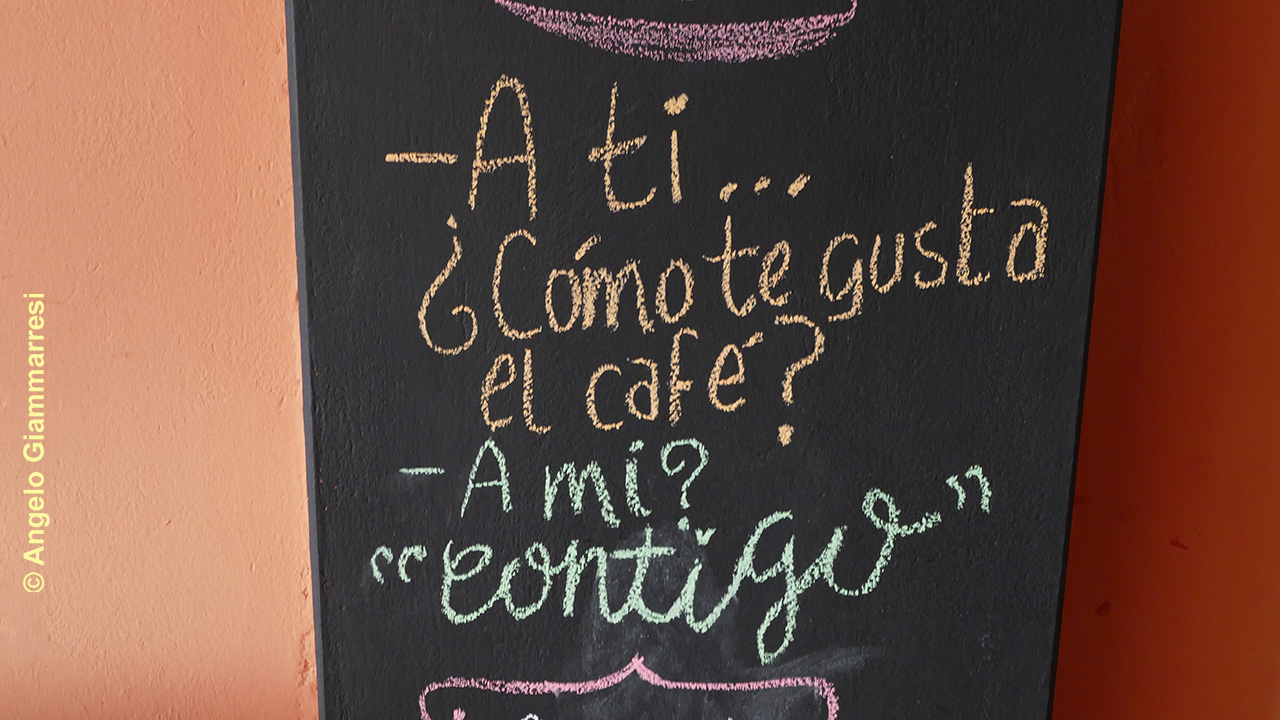 -A ti...
¿Cómo te gusta
el café?
-A mi?
"contigo"
© Angelo Giammarresi